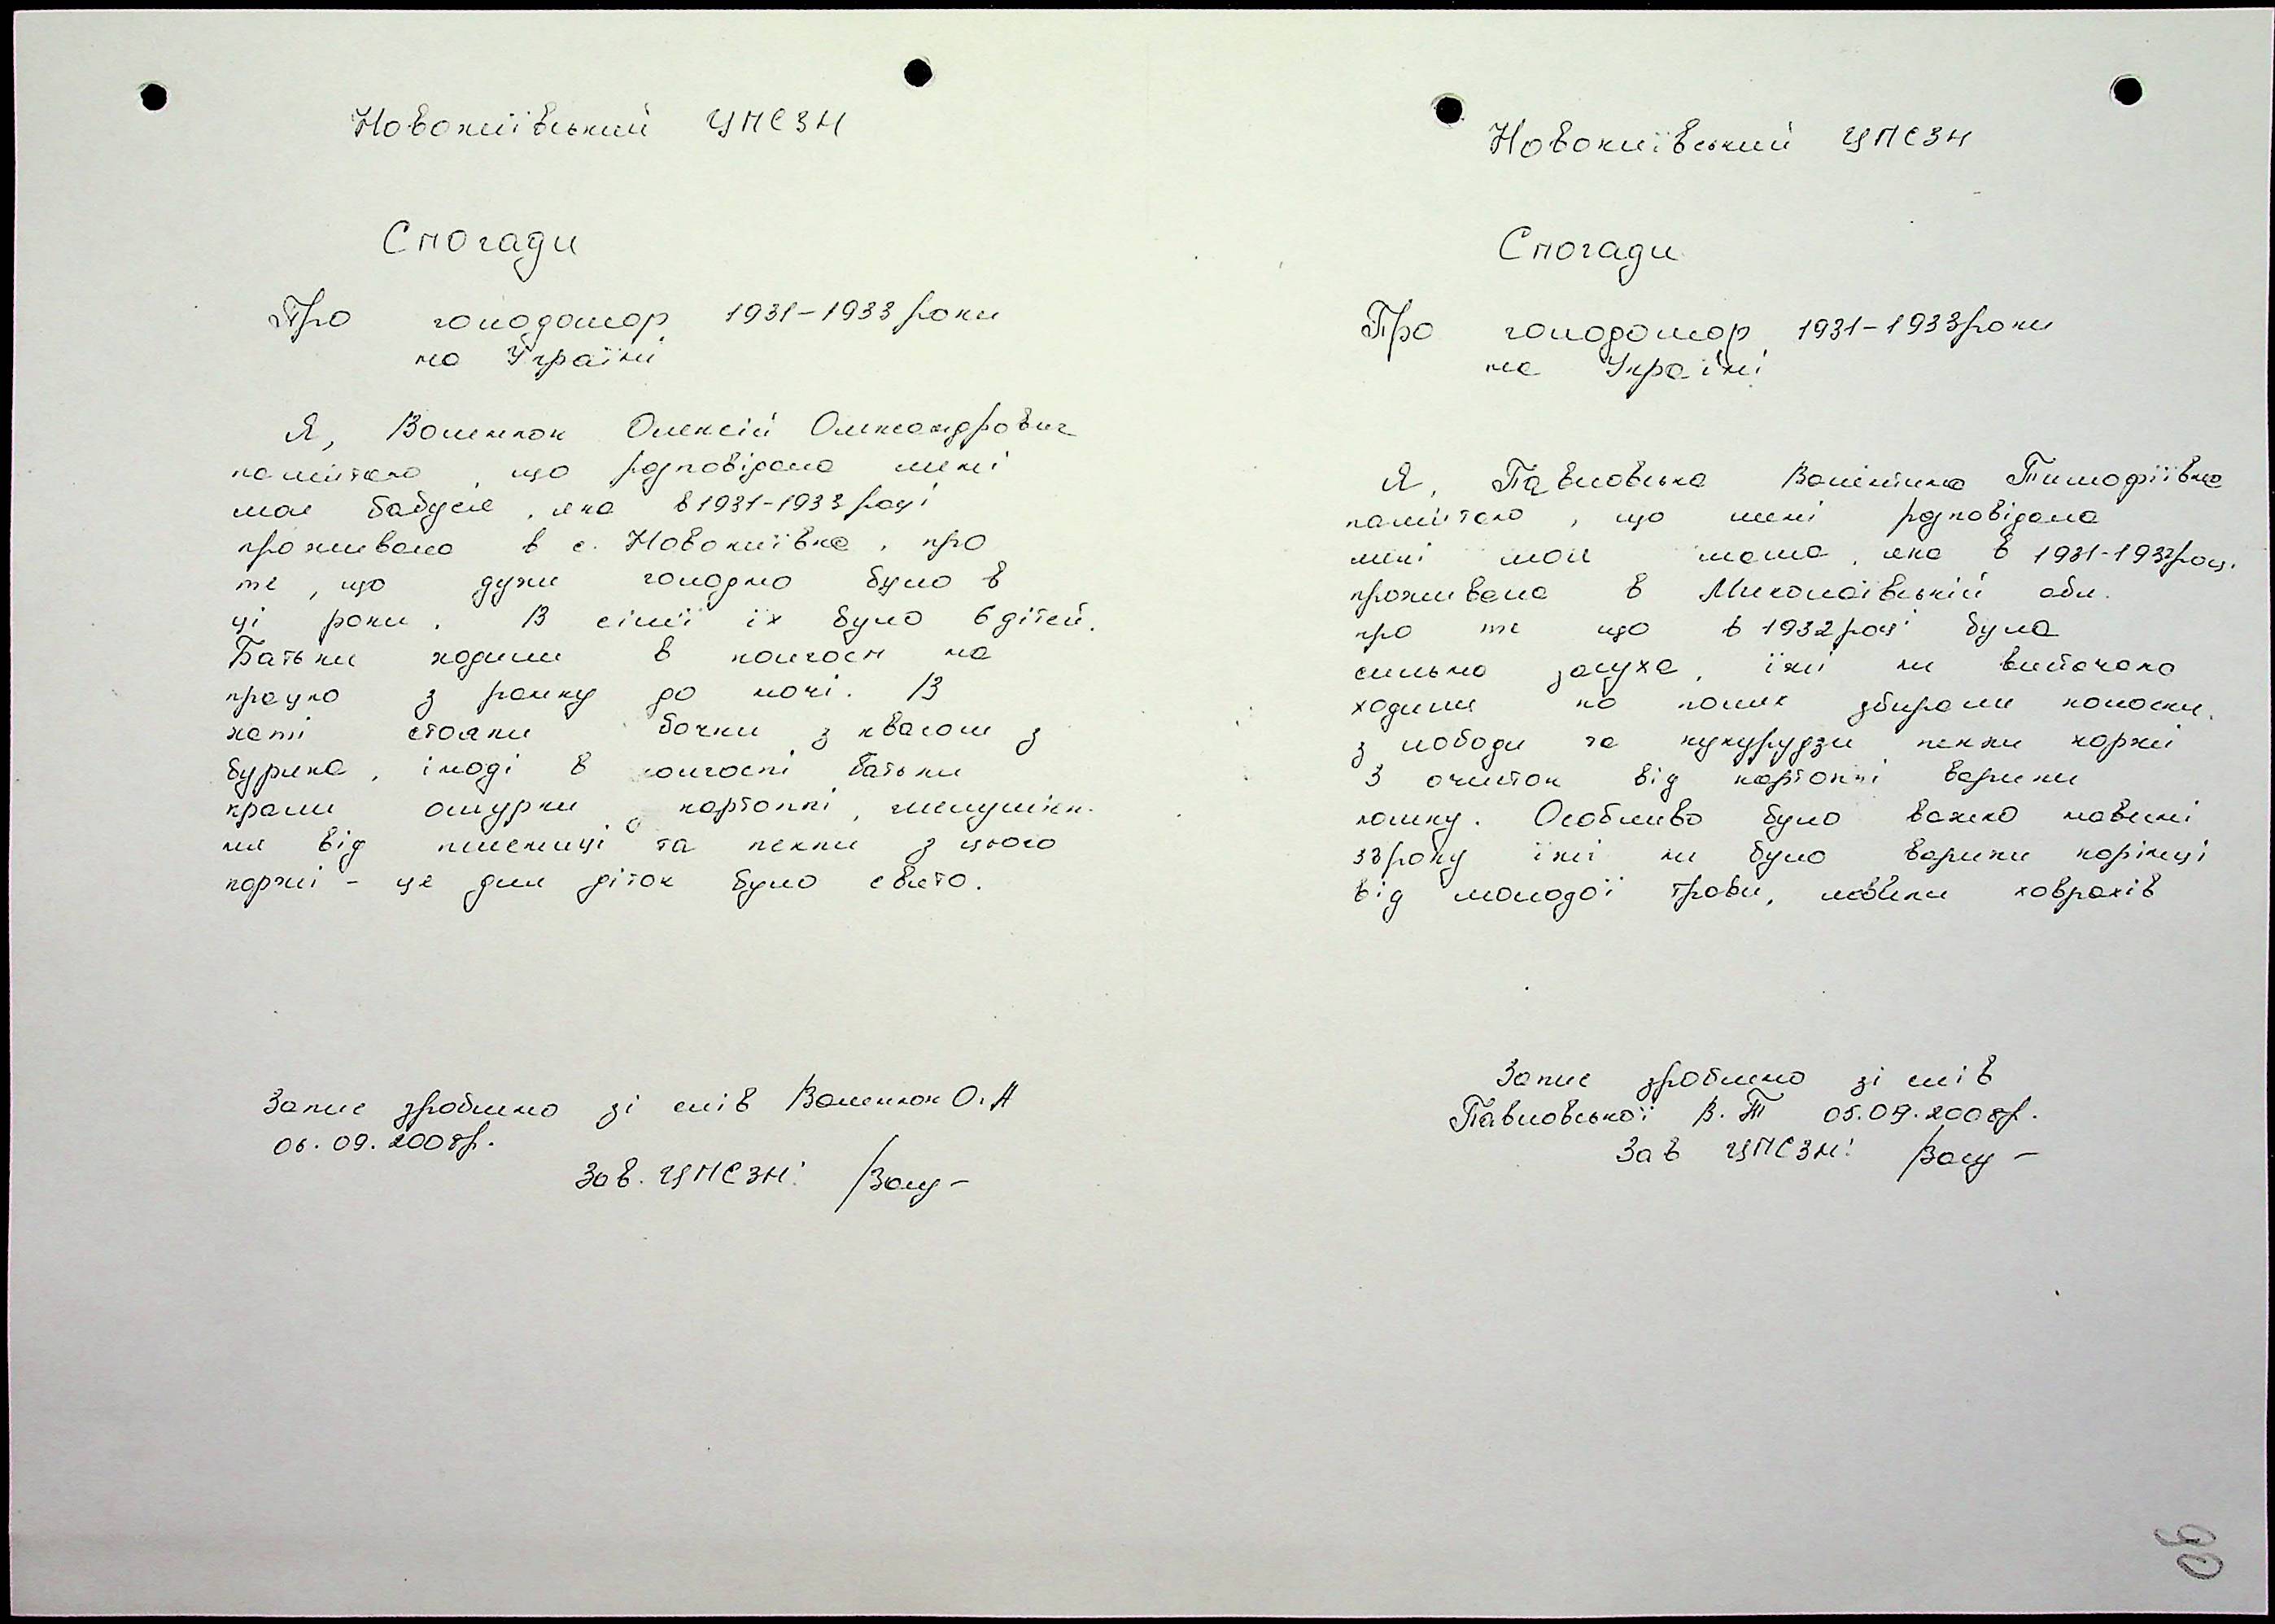 Новокиївський ЦПСЗН
Спогади
Про голодомор 1931-1933 роки
на Україні
Я, Воленюк Олексій Олександрович
памятаю, що розповідала мені
моя бабуся, яка в 1931-1933 році
проживала в с. Новокиївка, про
те, що дуже голодно було в
ці роки. В сімї їх було 6 дітей.
Батьки ходили в колгосп на
працю з ранку до ночі. В
хаті стояли бочки з квасом з
буряка, іноді в колгоспі батьки
крали ошурки картоплі,
ня від пшениці та пекли з цього
коржі - це для діток було свято.
Запис зроблено зі слів Воленюк О.А
06.09.2008р.
Зав. ЦПСЗН:
Новокиївський ЦПСЗН
Спогади
Про голодомор 1931-1933 роки
на Україні
Я, Павловська Валентина Тимофіївна
памятаю, що мені розповідала
мені моя мама, яка в 1931-1933 році
проживала в Миколаївській обл.
про те що в 1932 році була
сильна засуха, їжі не вистачало
ходили по полях збирали колоски,
з лободи та кукурудзи пекли коржі
З очисток від картоплі варили
юшку. Особливо було важко навесні
33 року їжі не було варили корінці
від молодої трави, ловили ховрахів
Запис зроблено зі слів
Павловської В. Т 05.09.2008р.
Зав ЦПСЗН:
90